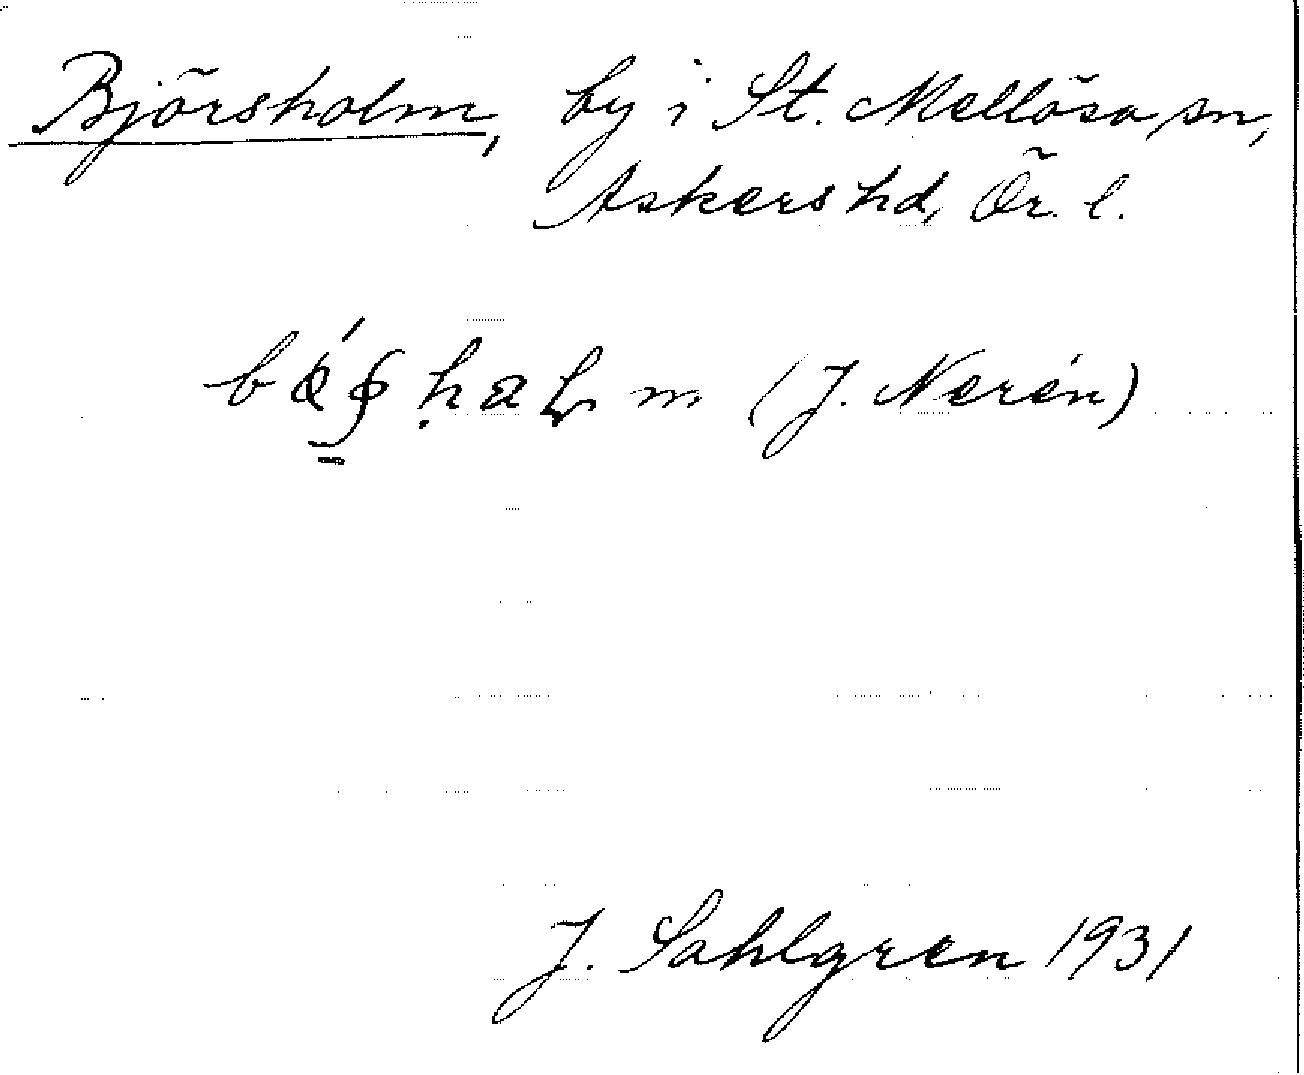 Björsholm, by i St. Mellösa sn,
Askers hd, Ör. l.
(J. Nerén)
J. Sahlgren 1931